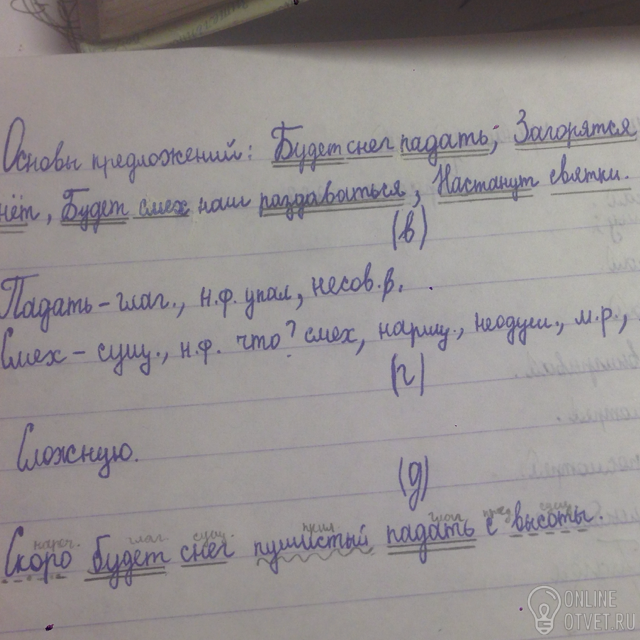 Основы предложений: Будет снег падать; Загорятся
нёт, Будет смех наш раздаваться, Настанут святки.
(в)
Падать - глаг., н.ф. упал, несов.в.
Смех - сущ., н.ф. что? смех, нариц., неодуш., м.р.,
(г)
Сложную.
(д)
нареч. глаг. сущ. прил. глаг. пред. сущ.
Скоро будет снег пушистый падать с высоты.
ONLINE
OTVET.RU